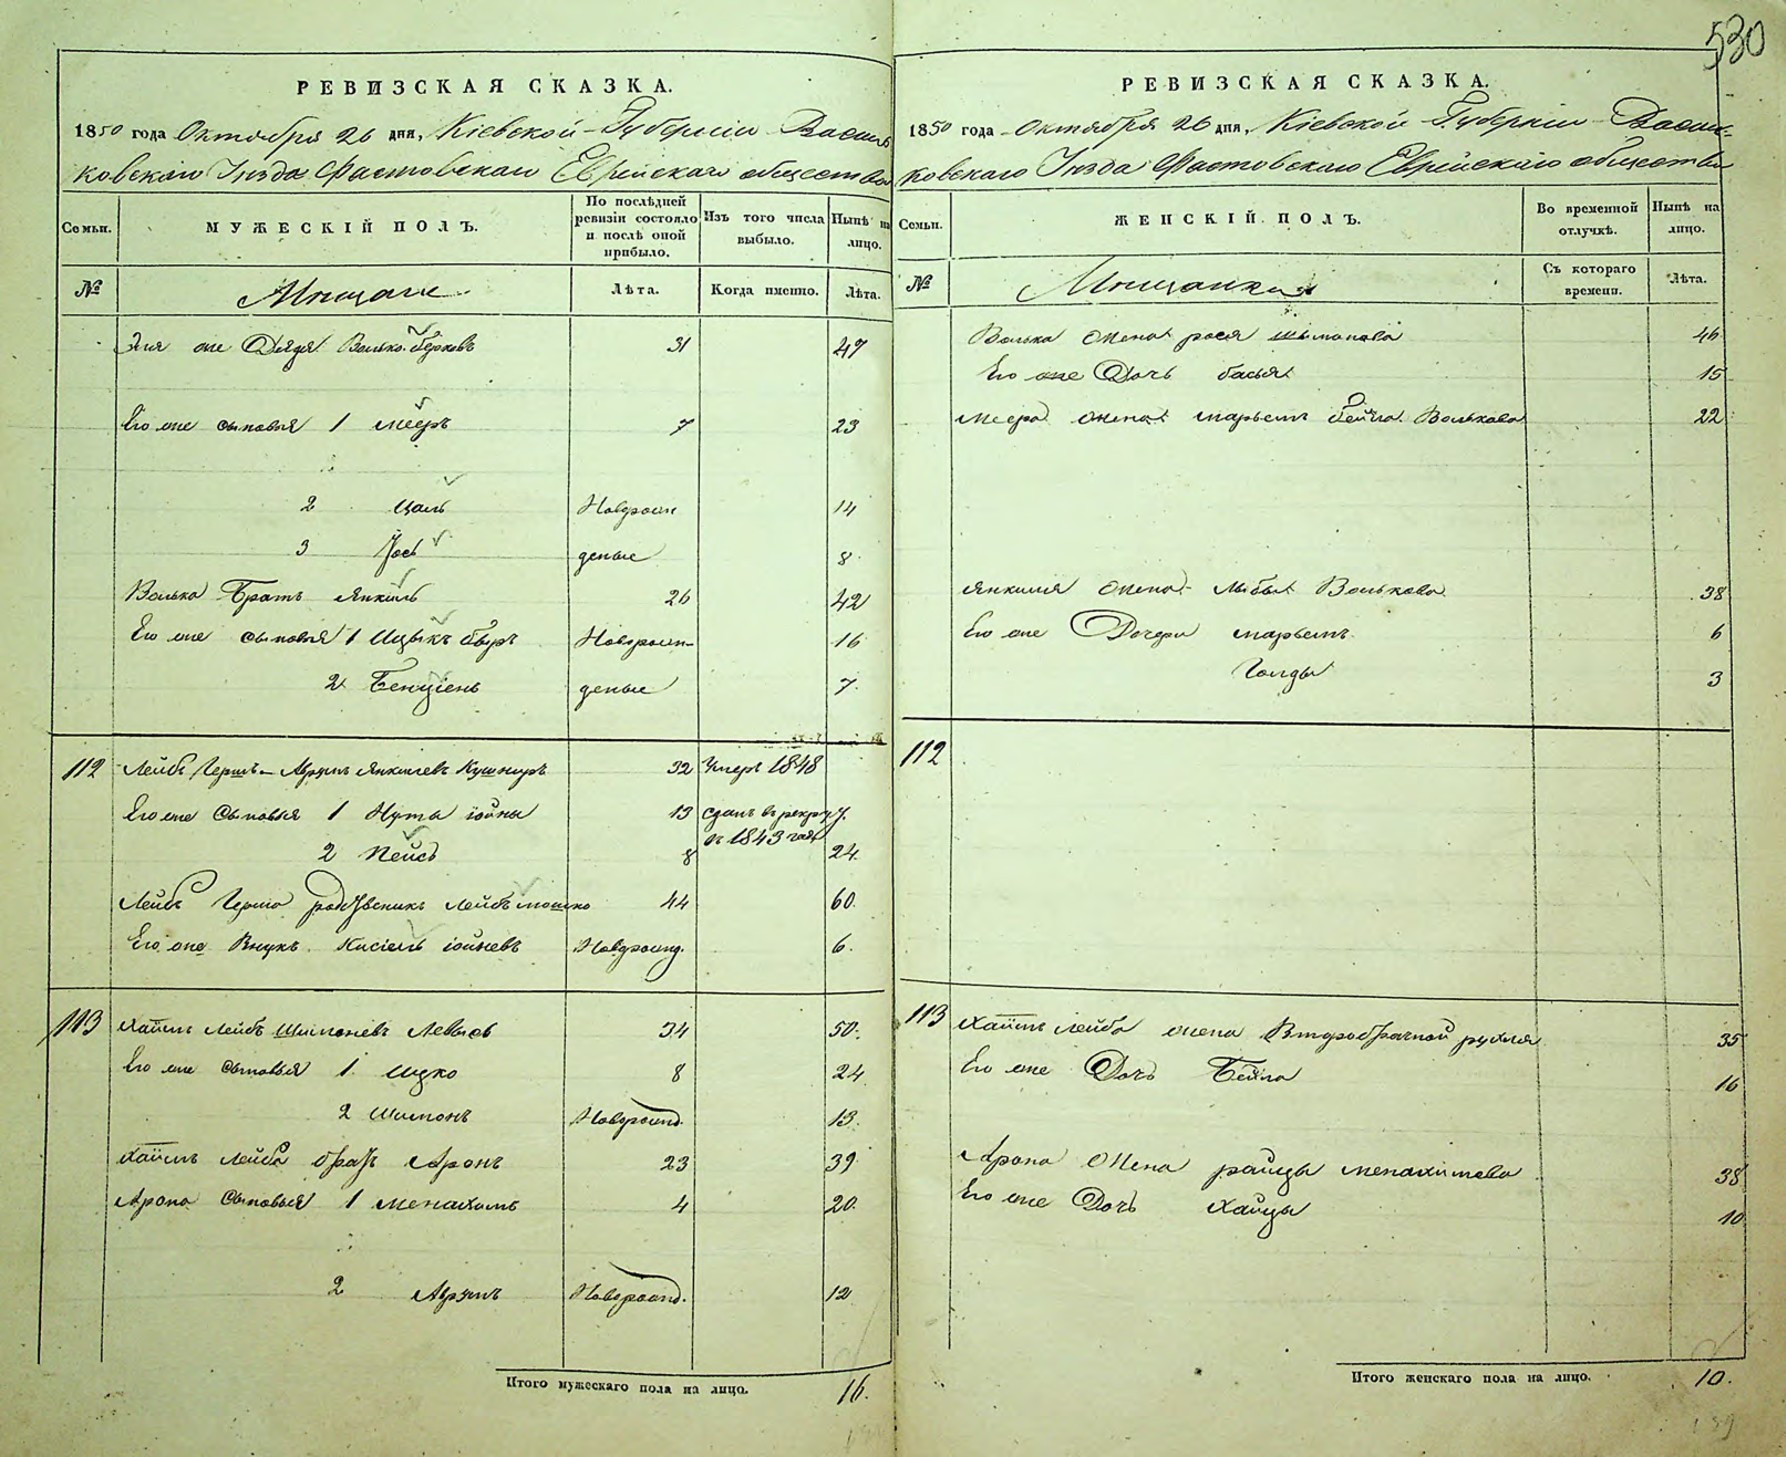 530
РЕВИЗСКАЯ СКАЗКА.
1850 года Октября 26 дня, Кіевской Губерніи Василь
ковскаго Уѣзда Фастовскаго Еврейскаго общества
Семьи.
МУЖЕСКІЙ ПОЛЪ.
По послѣдней ревизіи состояло и послѣ оной прибыло.
Изъ того числа выбыло.
Нынѣ на лицо.
№
Мѣщане
Лѣта.
Когда именно.
Лѣта.
же Дядя Волько Берковъ 31 47
Его же сыновья 1 Мееръ 7 23
2 Цаль Новорож 14
3 Іось денные 8
Волька Братъ Янкель 26 42
Его же сыновья 1 Ицыкъ Беръ Новорож- 16
2 Бенціенъ денные 7.
112 Лейбъ Гершъ-Аврумъ Янкелевъ Кушниръ 32 Умеръ 1848
Его же сыновья 1 Нута Іойна 13 сданъ въ рекруты
въ 1843 годѣ
2 Пейсъ 8 24.
Лейбъ Герша родственикъ Лейбъ Мошко 44 60.
Его же Внукъ Кисіель Іойневъ Новорожд. 6.
113 Хаимъ Лейбъ Шимоневъ 34 50.
Его же сыновья 1 Ицко 8 24
2 Шимонъ Новорожд. 13.
Хаимъ Лейба братъ Аронъ 23 39
Арона сыновья 1 Менахемъ 4 20.
2 Аврумъ Новорожд. 12
Итого мужескаго пола на лицо. 16.
РЕВИЗСКАЯ СКАЗКА.
1850 года Октября 26 дня, Кіевской Губерніи Василь-
ковскаго Уѣзда Фастовскаго Еврейскаго общества
Семьи.
ЖЕНСКІЙ ПОЛЪ.
Во временной отлучкѣ.
Нынѣ на лицо.
№
Мѣщанки
Съ котораго времени.
Лѣта.
Волька жена Рося Шимонова 46
Его же Дочь Бася 15
Меера жена Марьемъ Бейла Волькова 22
Янкеля жена Волькова 38
Его же Дочери Марьемъ 6
Голды 3
112
113 Хаимъ Лейба жена Второбрачной Рухля 35
Его же Дочь Бейла 16
Арона жена Раицы Менахимова 38
Его же Дочь Хаицы 10
Итого женскаго пола на лицо. 10.